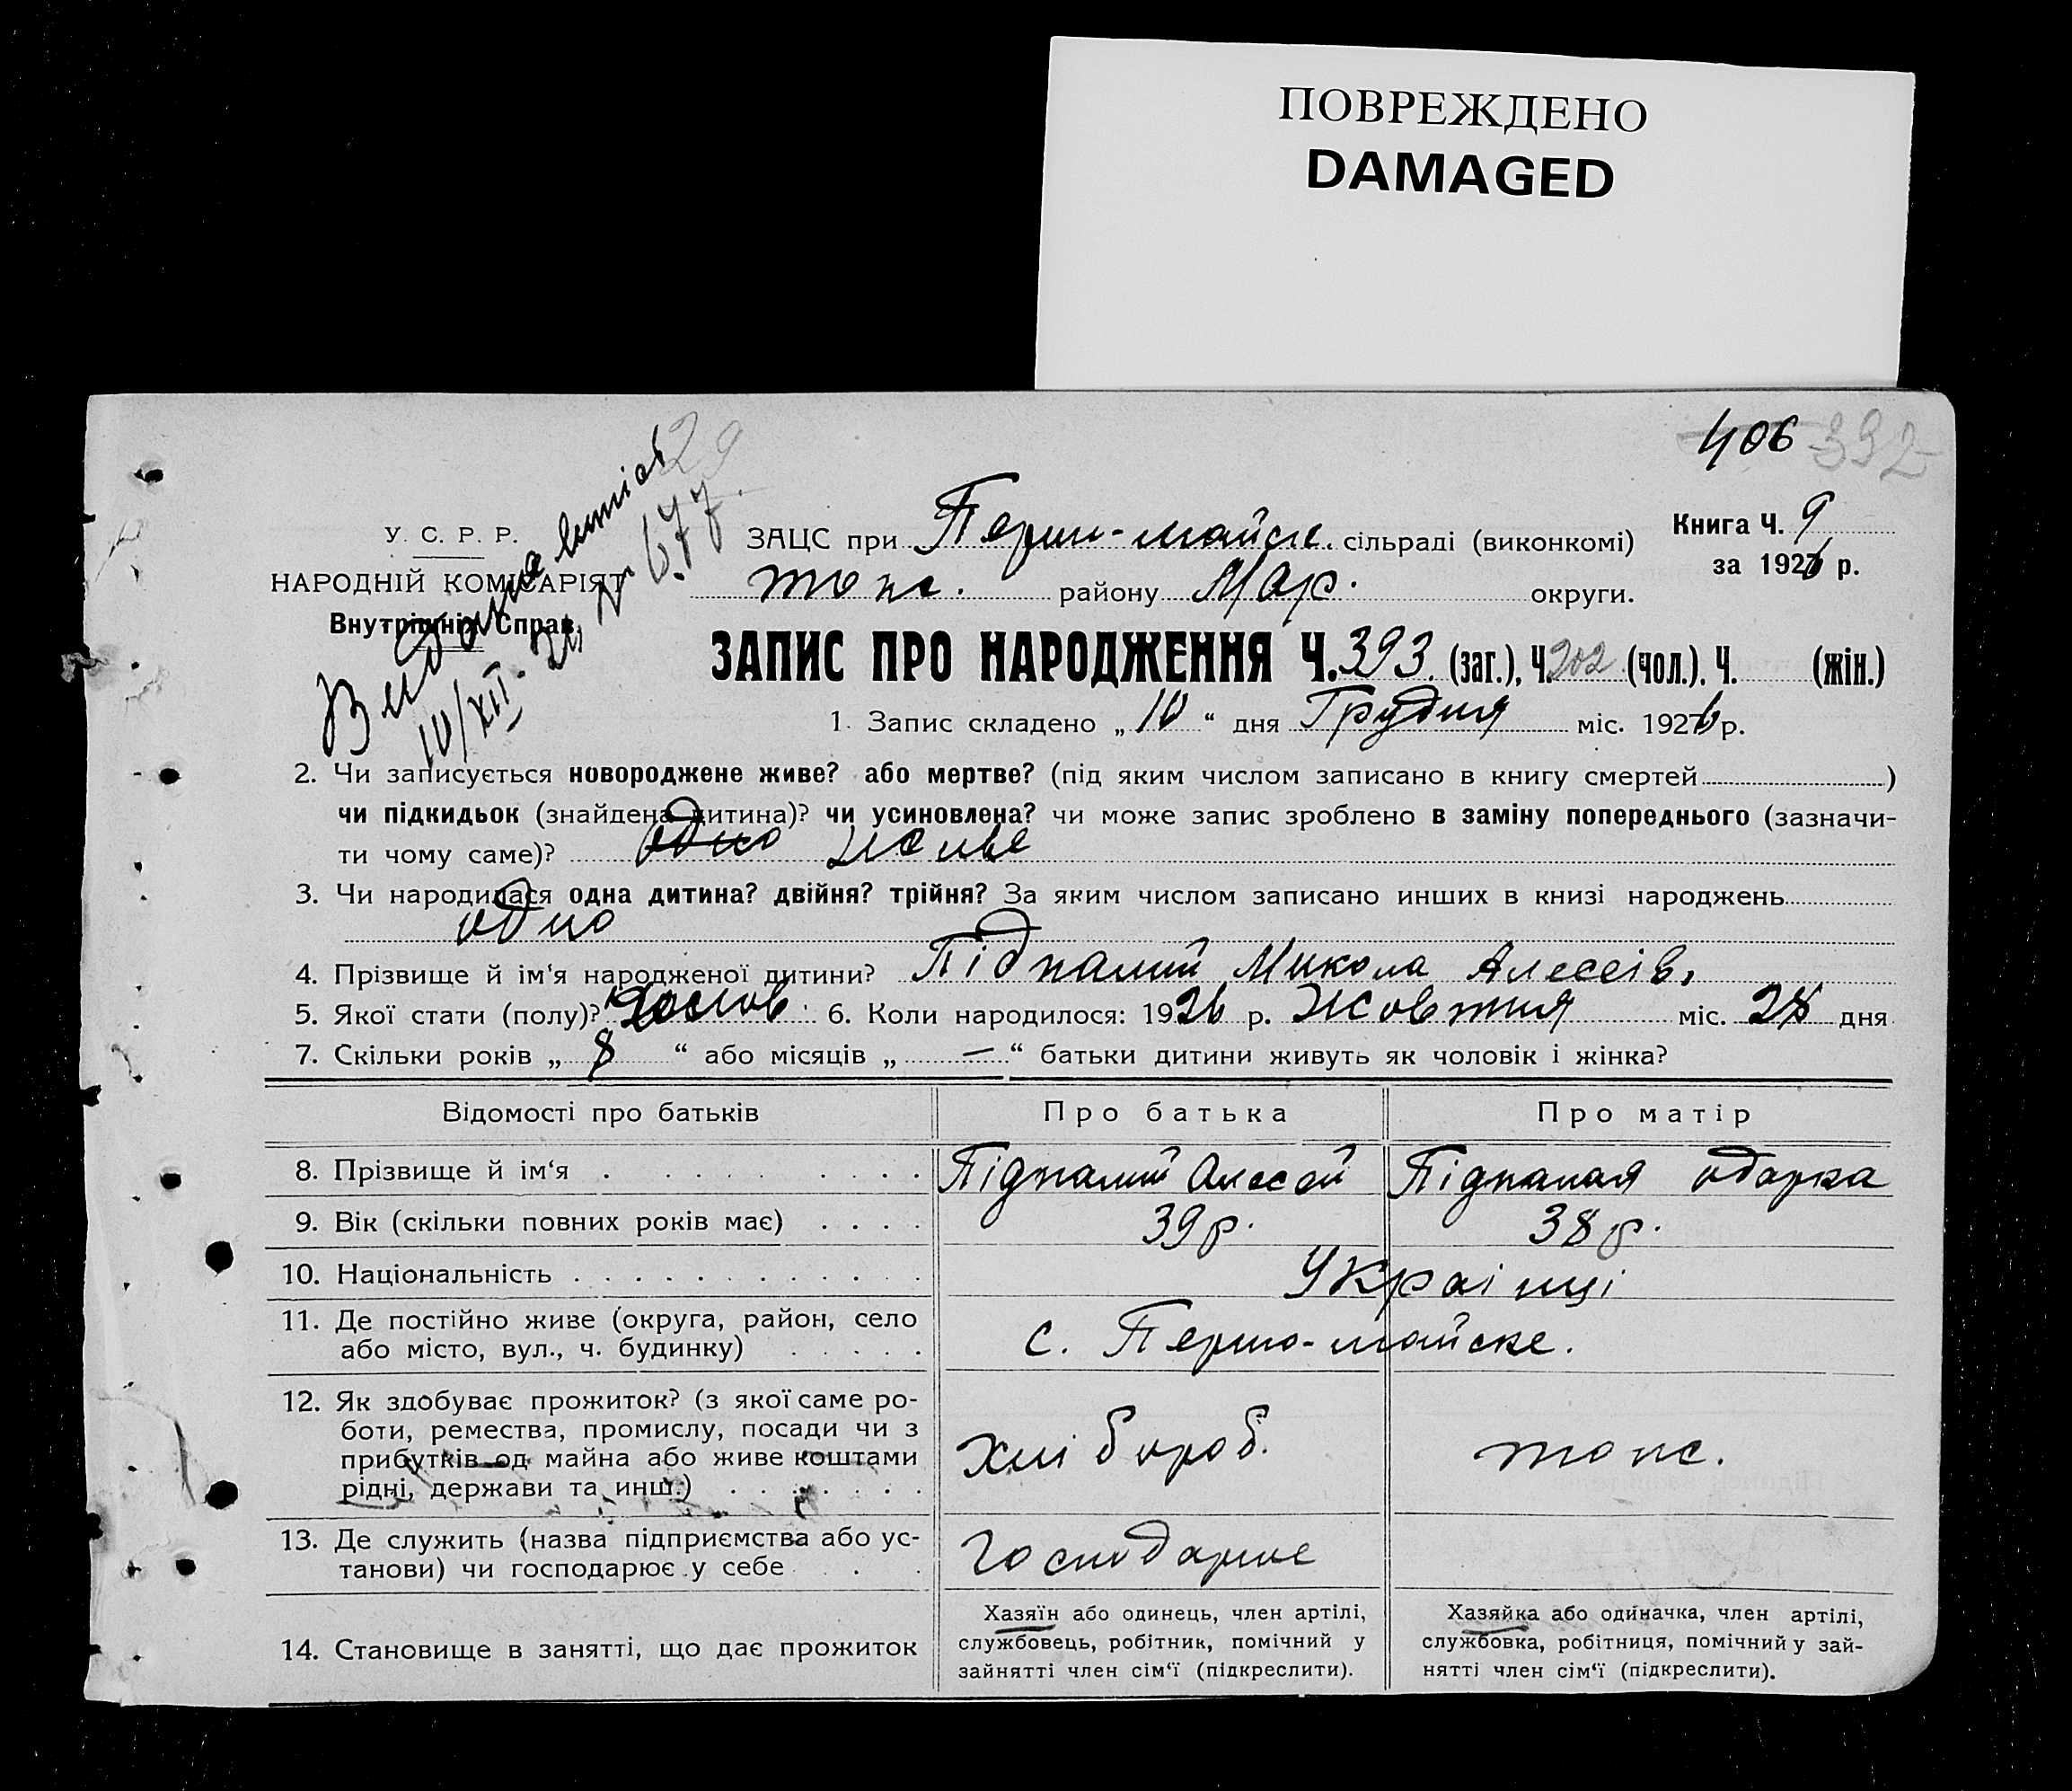 ПОВРЕЖДЕНО
DAMAGED
406 392
29
Видана
10/XII- 26 № 677
У. С. Р. Р.
НАРОДНІЙ КОМІСАРІЯТ
Внутрішніх Справ
ЗАЦС при Перш-майск. сільраді (виконкомі)
Книга Ч. 9
за 1926 р.
топс. району Мар. округи.
ЗАПИС ПРО НАРОДЖЕННЯ Ч. 393. (заг.), Ч. 202 (чол.). Ч. (жін.)
1. Запис складено „ 10 “ дня Грудня міс. 1926 р.
2. Чи записується новороджене живе? або мертве? (під яким числом записано в книгу смертей )
чи підкидьок (знайдена дитина)? чи усиновлена? чи може запис зроблено в заміну попереднього (зазначи-
ти чому саме)? одно живе
3. Чи народилася одна дитина? двійня? трійня? За яким числом записано инших в книзі народжень
одно
4. Прізвище й ім‘я народженої дитини? Підпалий Микола Алексіїв.
5. Якої стати (полу)? 6. Коли народилося: 1926 р. Жовтня міс. 28 дня
7. Скільки років „ 8 “ або місяців „ — “ батьки дитини живуть як чоловік і жінка?
Відомості про батьків Про батька Про матір
8. Прізвище й ім‘я Підпалий Алексей Підпалая Одарка
9. Вік (скільки повних років має) 39 р. 38 р.
10. Національність Украінці
11. Де постійно живе (округа, район, село
або місто, вул., ч. будинку) с. Першо-майске.
12. Як здобуває прожиток? (з якої саме ро-
боти, ремества, промислу, посади чи з
прибутків од майна або живе коштами
рідні, держави та инш.) хлібороб. топс.
13. Де служить (назва підприємства або ус-
танови) чи господарює у себе Господарює
14. Становище в занятті, що дає прожиток
Хазяїн або одинець, член артілі,
службовець, робітник, помічний у
зайнятті член сім‘ї (підкреслити).
Хазяйка або одиначка, член артілі,
службовка, робітниця, помічний у зай-
нятті член сім‘ї (підкреслити).